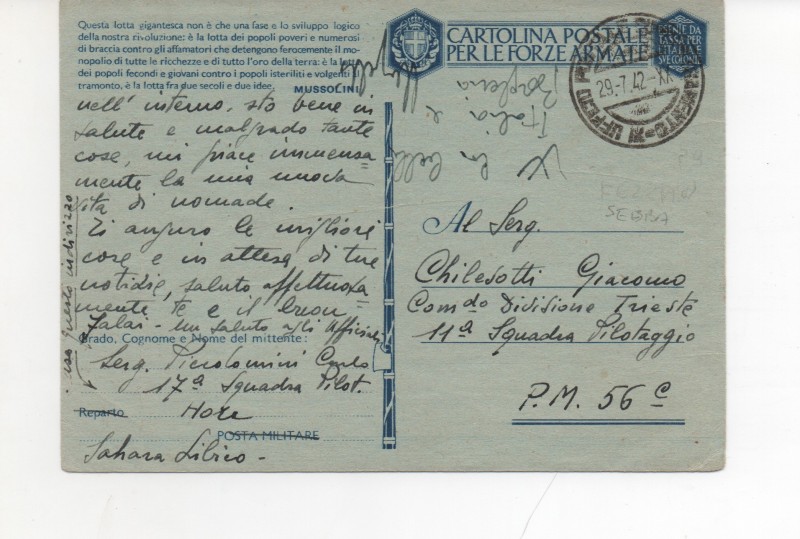 Questa lotta gigantesca non è che una fase e lo sviluppo logico
della nostra rivoluzione: è la lotta dei popoli poveri e numerosi
di braccia contro gli affamatori che detengono ferocemente il mo-
nopolio di tutte le ricchezze e di tutto l'oro della terra: è la lotta
dei popoli fecondi e giovani contro i popoli isteriliti e volgenti al
tramonto, è la lotta fra due secoli e due idee.
MUSSOLINI
nell'interno, sto bene in
salute e malgrado tante
cose, mi piace immensa=
mente la mia nuova
vita di nomade.
Ti auguro le migliori
cose e in attesa di tue
notizie, saluto affettuosa=
mente te e il buon
Zalai - un saluto agli Ufficiali
Grado, Cognome e Nome del mittente:
Serg. Piccolomini Carlo
17ª Squadra Pilot.
Reparto Hon
POSTA MILITARE
Sahara Libico -
usa questo indirizzo
CARTOLINA POSTALE
PER LE FORZE ARMATE
ESENTE DA
TASSA PER
L'ITALIA E
SUE COLONIE
29.-7.42-XX
X la bella
Italia e
FEZZAN
SEBHA
Al Serg.
Chilesotti Giacomo
Comdo Divisione Trieste
11ª Squadra Pilotaggio
P.M. 56 c